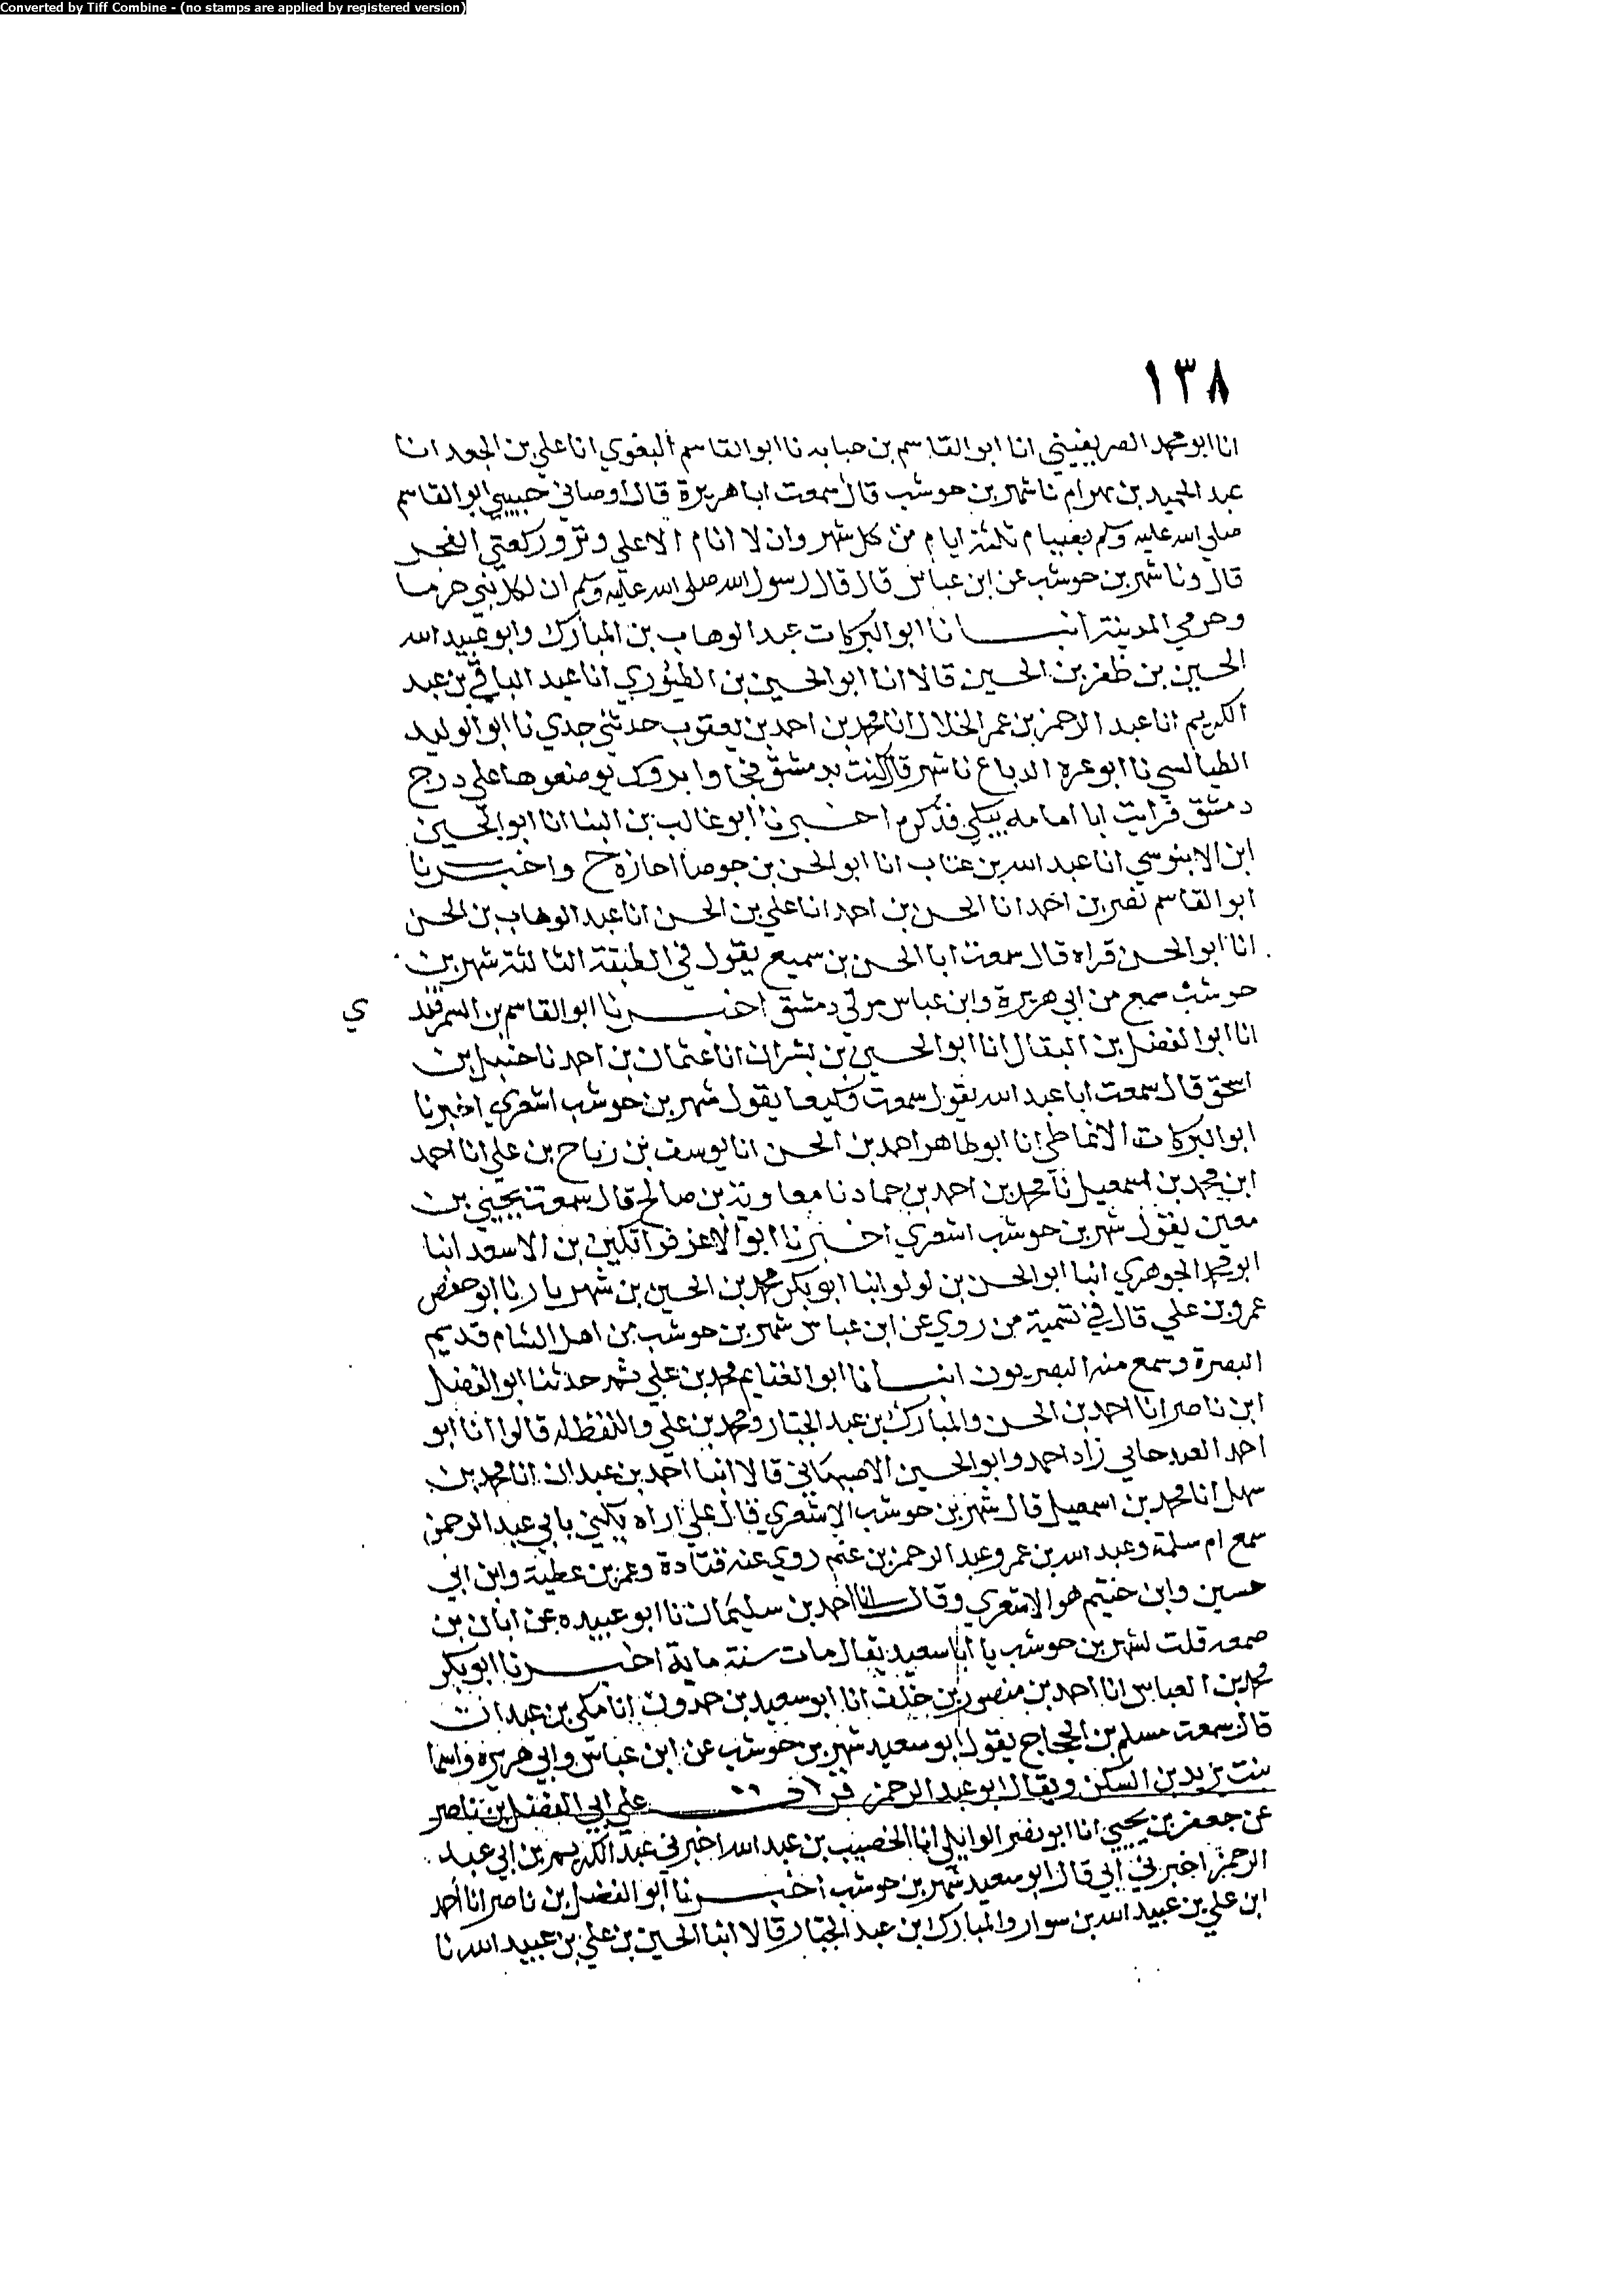 Converted by Tiff Combine - (no stamps are applied by registered version)
١٣٨
انا ابو محمد الصريفيني انا ابو القاسم بن حبابه نا ابو القاسم البغوي انا علي بن الجعد انا
عبد الحميد بن بهرام نا شهر بن حوشب قال سمعت ابا هريرة قال اوصاني حبيبي ابو القاسم
صلي الله عليه وسلم بصيام ثلثة ايام من كل شهر وان لا انام الا علي وتر وركعتي الفجر
قال ونا شهر بن حوشب عن ابن عباس قال قال رسول الله صلى الله عليه وسلم ان لكل نبي حرما
وحرمي المدينة انبانا ابو البركات عبد الوهاب بن المبارك وابو عبيد الله
الحسين بن ظفر بن الحسين قالا انا ابو الحسين بن الطيوري انا عبد الباقي بن عبد
الكريم انا عبد الرحمن بن عمر الخلال انا محمد بن احمد بن يعقوب حدثني جدي نا ابو الوليد
الطيالسي نا ابو عره الدباغ نا شهر قال كنت بدمشق فجاوا بروك يوضعوها علي درج
دمشق فرايت ابا امامه يبكي فذكرم اخبرنا ابو غالب بن البنا انا ابو الحسين
ابن الابنوسي انا عبد الله بن عتاب انا ابو الحسن بن جوصا اجازه ح واخبرنا
ابو القاسم نصر بن احمد انا الحسن بن احمد انا علي بن الحسن انا عبد الوهاب بن الحسن
انا ابو الحسن قراه قال سمعت ابا الحسن بن سميع يقول في الطبقة الثالثة شهر بن
حوشب سمع من ابي هريرة وابن عباس مر في دمشق اخبرنا ابو القاسم بن السمرقند ي
انا ابو الفضل بن البقال انا ابو الحسين بن بشران انا عثمان بن احمد نا حنبل بن
اسحق قال سمعت ابا عبد الله يقول سمعت وكيعا يقول شهر بن حوشب اشعري اخبرنا
ابو البركات الانماطي انا ابو طاهر احمد بن الحسن انا يوسف بن رباح بن علي انا احمد
ابن محمد بن اسمعيل نا محمد بن احمد بن حماد نا معاوية بن صالح قال سمعت يحيي بن
معين يقول شهر بن حوشب اشعري اخبرنا ابو الاعز قراتكين بن الاسعد انبا
ابو محمد الجوهري انبا ابو الحسن بن لولو انبا ابو بكر محمد بن الحسين بن شهريار نا ابو حفص
عمرو بن علي قال في تسمية من روي عن ابن عباس شهر بن حوشب من اهل الشام قديم
البصرة وسمع منه البصريون انبانا ابو الغنايم محمد بن علي ثم حدثنا ابو الفضل
ابن ناصر انا احمد بن الحسن والمبارك بن عبد الجبار ومحمد بن علي واللفظ له قالوا انا ابو
احمد الغندجاني زاد احمد وابو الحسين الاصبهاني قالا انبا احمد بن عبدان انا محمد بن
سهل انا محمد بن اسمعيل قال شهر بن حوشب الاشعري قال علي اراه يكني بابي عبد الرحمن
سمع ام سلمة وعبد الله بن عمرو وعبد الرحمن بن غنم روي عنه قتادة وعمر بن عطية وابن ابي
حسين وابن خثيم هو الاشعري وقال لنا احمد بن سليمان نا ابو عبيده عن ابان بن
صمعه قلت لشهر بن حوشب يا ابا سعيد يقال مات سنة ماية اخبرنا ابو بكر
محمد بن العباس انا احمد بن منصور بن خلف انا ابو سعيد بن حمدون انا مكي بن عبدان
قال سمعت مسلم بن الحجاج يقول ابو سعيد شهر بن حوشب عن ابن عباس وابي هريرة واسما
بنت يزيد بن السكن ويقال ابو عبد الرحمن قرات علي ابي الفضل بن ناصر
عن جعفر بن يحيي انا ابو نصر الوايلي انا الخصيب بن عبد الله اخبرني عبد الكريم بن ابي عبد
الرحمن اخبرني ابي قال ابو سعيد شهر بن حوشب اخبرنا ابو الفضل بن ناصر انا احمد
ابن علي بن عبيد الله بن سوار والمبارك بن عبد الجبار قالا انبا الحسين بن علي بن عبيد الله نا